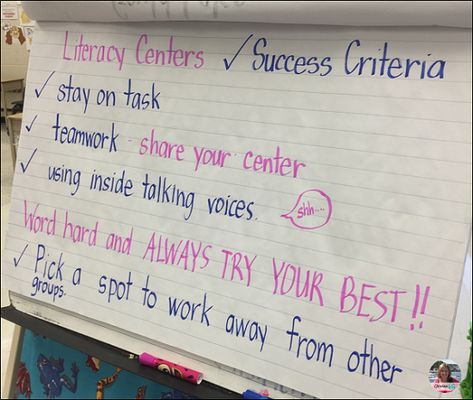 Literacy Centers ✓ Success Criteria
✓ stay on task
✓ teamwork - share your center
✓ using inside talking voices. shh....
Word hard and ALWAYS TRY YOUR BEST!!
✓ Pick a spot to work away from other
groups.